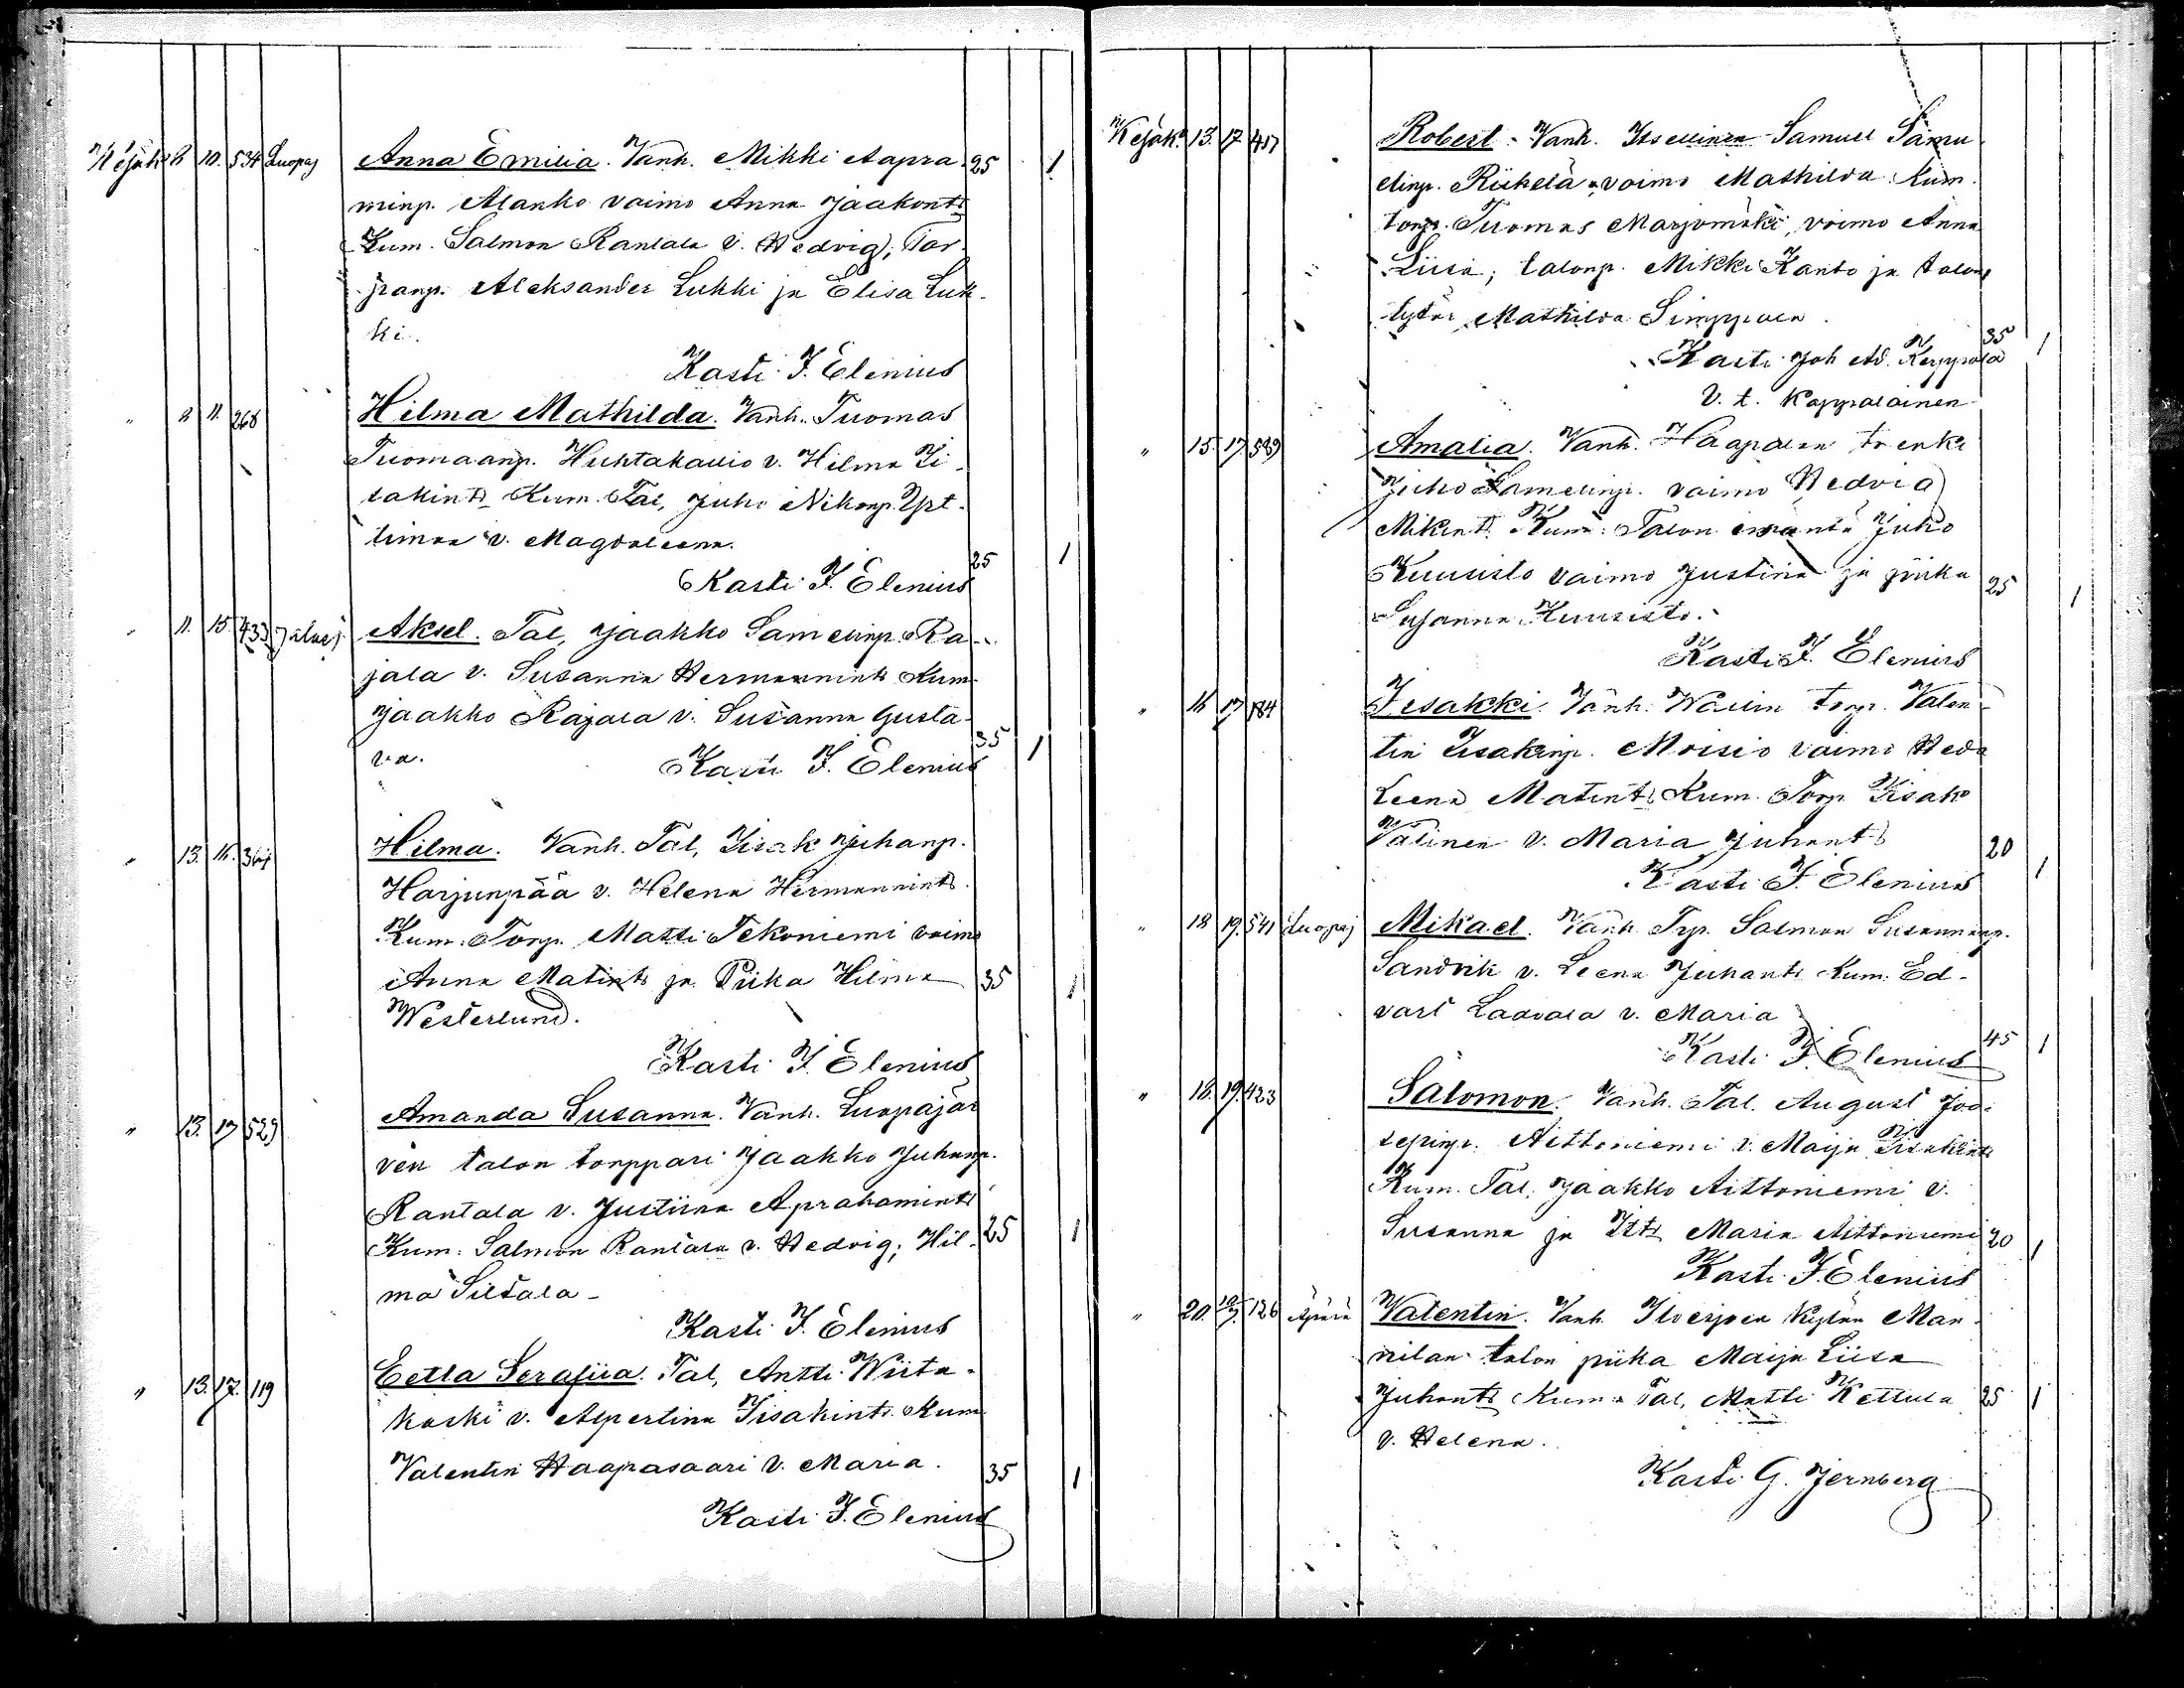 Kesäk 8 10. 534 Luopaj Anna Emilia. Vanh. Mikki Aapra- 25 1
minp. Alanko vaimo Anna Jaakonts
Kum. Salmon Rantala v. Hedvig; Tor-
panp. Aleksander Lukki ja Elisa Luk-
ki.
Kasti J. Elenius
" 8 11. 268 Hilma Mathilda. Vanh. Tuomas
Tuomaanp. Huhtakallio v. Hilma Ii-
sakints Kum. Tal, Juho Nikonp.
v. Magdaleena. 25 1
Kasti J. Elenius
" 11. 15. 433 Jalasj. Aksel. Tal, Jaakko Samelinp. Ra-
jala v. Susanna Hermannints Kum
Jaakko Rajala v. Susanna Gusta-
va. 35 1
Kasti J. Elenius
" 13. 16. Hilma. Vanh. Tal, Iisak Juhanp.
Harjunpää v. Helena Hermannints.
Kum: Torp. Matti Tekoniemi vaimo
Anna Matints ja Piika Hilma 35 1
Westerlund.
Kasti J. Elenius
" 13. 17 529 Amanda Susanna. Vanh. Luopajär
ven talon torppari Jaakko Juhanp.
Rantala v. Justiina Aprahamints
Kum: Salmon Rantala v. Hedvig; Hil- 25 1
ma Siltala-
Kasti J. Elenius
" 13. 17. 119 Eetla Serafiia. Tal, Antti Wiita-
koski v. Alpertina Iisakints. Kum
Valentin Haapasaari v. Maria. 35 1
Kasti J. Elenius
Kesäk. 13. 17 417 Robert. Vanh. Itsellinen Samuel Samu-
elinp. Riihelä vaimo Mathilda. Kum.
torp. Tuomas Marjomäki, vaimo Anna
Liisa; talonp. Mikki Kanto ja talon
tytär Mathilda
Kasti Joh Ad. Keppola 35 1
V. t. Kappalainen
" 15. 17. 589 Amalia. Vanh. Haapalan trenki
Juho Samelinp. vaimo Hedvig
Mikint. Kum: Talon isäntä Juho
Kuusisto vaimo Justina ja piika 25 1
Susanna Kuusisto.
Kasti J. Elenius
" 16 17 184 Iisakki. Vanh. Wallin torp. Valen-
tin Iisakinp. Moisio vaimo Heda
Leena Matints Kum. Torp. Iisak
Välinen v. Maria Juhants 20 1
Kasti J. Elenius
" 18 19. 541 Luopaj Mikael. Vanh. Trp. Salmon Susannanp.
Sandvik v. Leena Juhants Kum: Ed-
vart Laavala v. Maria
Kasti J. Elenius 45 1
" 18. 19. 423 Salomon. Vanh. Tal. August Joo-
sepinp. Aittoniemi v. Maija Iisakints
Kum. Tal. Jaakko Aittoniemi v.
Susanna ja Itts Maria Aittoniemi 20 1
Kasti J. Elenius
" 20. 126 Äpärä Valentin. Vanh. Ilvesjoen kylän Man-
nilan talon piika Maija Liisa
Juhants Kum: Tal, Matti Kettula 25 1
v. Helena.
Kasti G. Jernberg